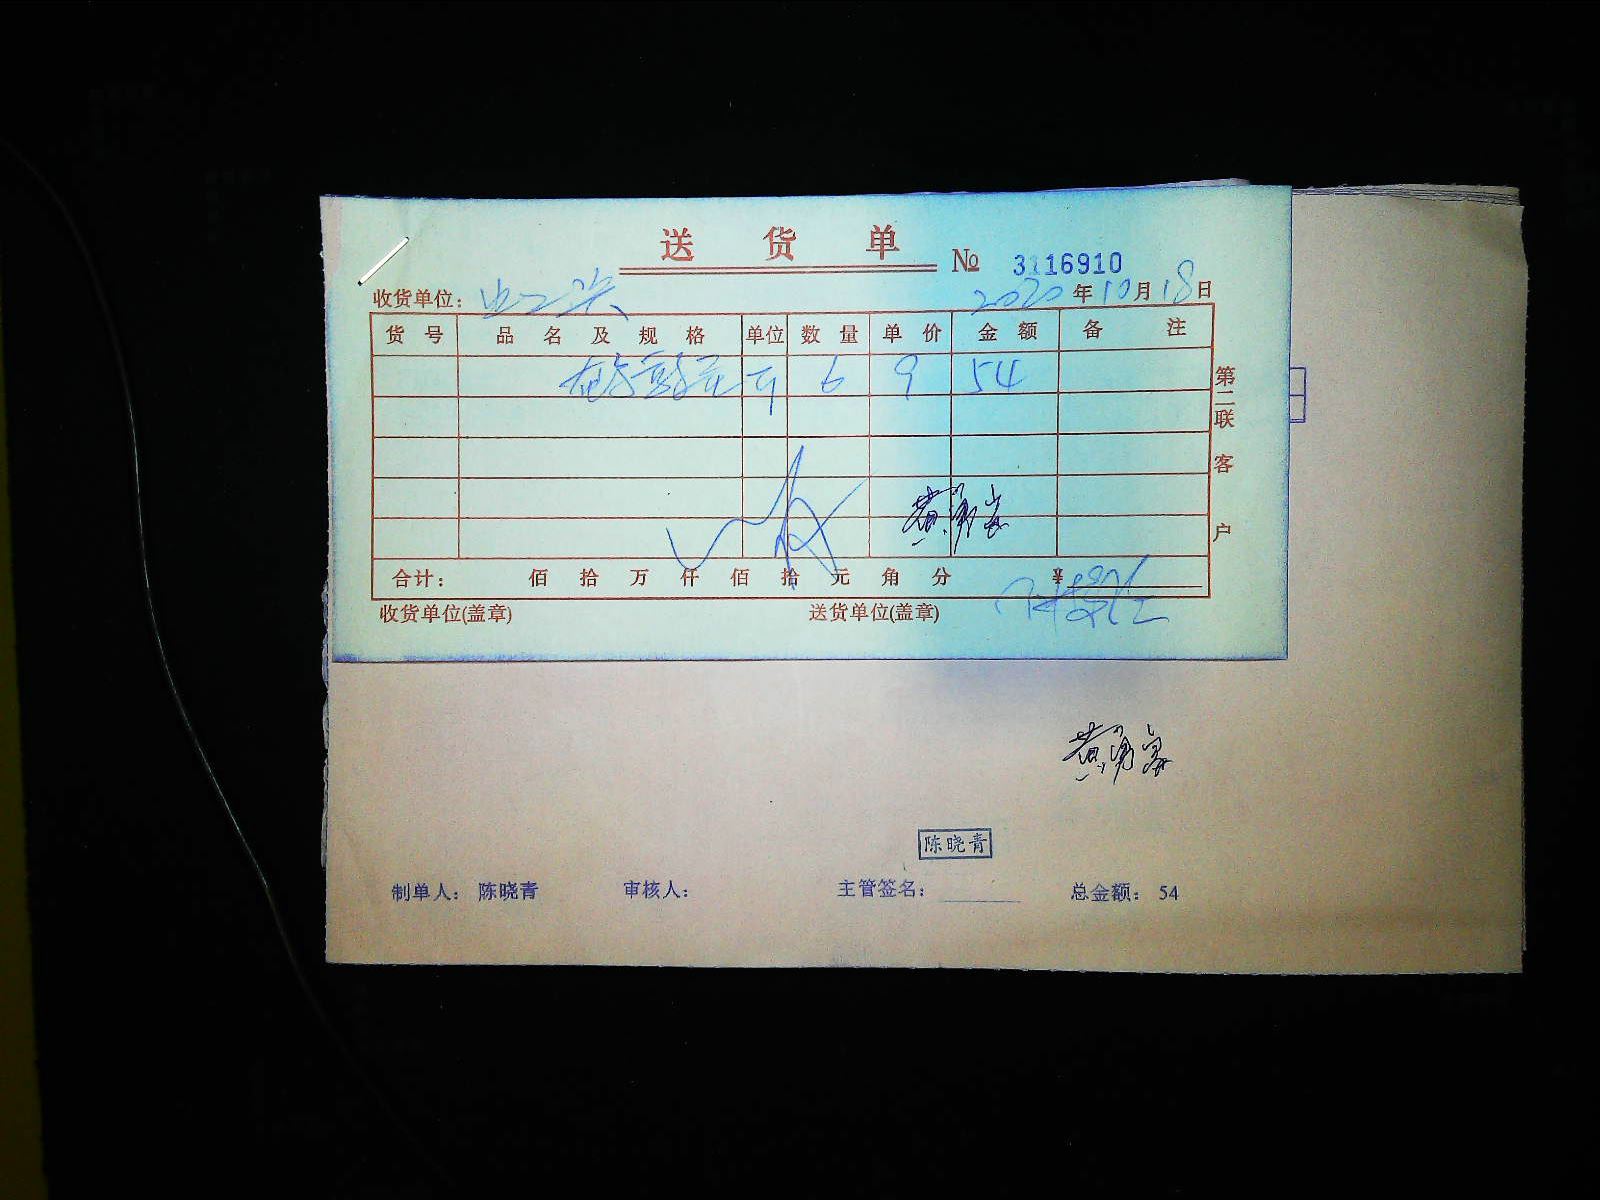 送货单 № 3116910
收货单位： 2020年10月18日
货号 品名及规格 单位 数量 单价 金额 备注
斤 6 9 54
第二联 客户
合计： 佰拾万仟佰拾元角分 ¥
收货单位(盖章) 送货单位(盖章)
陈晓青
制单人： 陈晓青 审核人： 主管签名： 总金额： 54